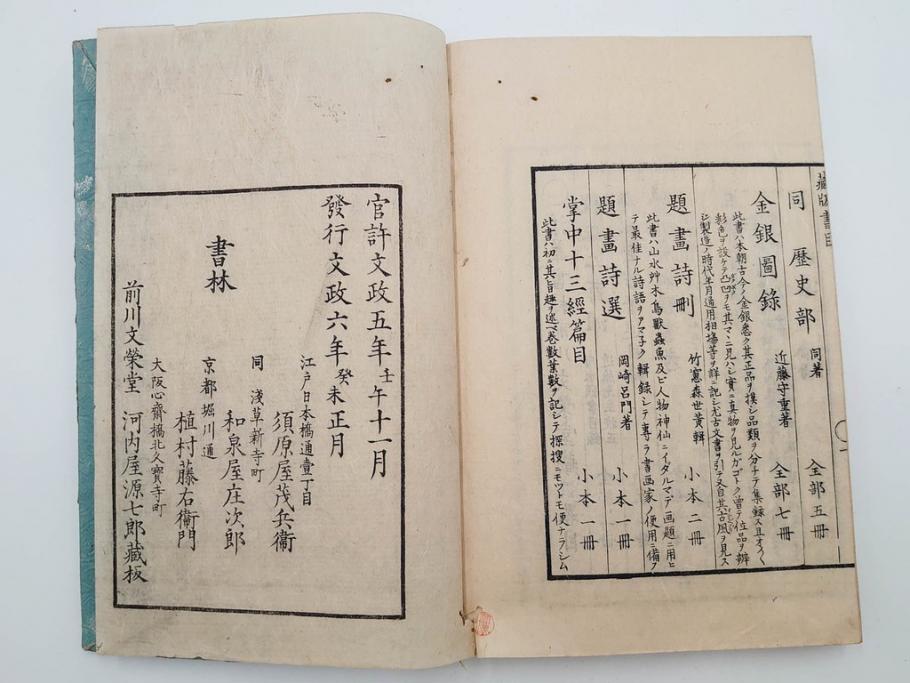 藏版書目
同 歷史部 同著 全部五冊
金銀圖錄 近藤守重著 全部七冊
此書ハ本朝古今ノ金銀悉ク其正品ヲ摸シ品類ヲ分チテ集録ス且オノ〱
彩色ヲ設ケテ凸凹ヲモ其マヽニ見ハシ實ニ真物ヲ見ルガゴトク曽テ位品ヲ辨
シ製造ノ時代年月通用相塲等ヲ詳ニ記シ尤古文書ヲ引テ又自其古風ヲ見ス
題畫詩刪 竹窻森世黄輯 小本二冊
此書ハ山水艸木鳥獸蟲魚及ビ人物神仙ニイタルマデ画題ニ用ヒ
テ最佳ナル詩語ヲアマ子ク輯録シテ專ラ書画家ノ便用ニ備フ
題畫詩選 岡崎呂門著 小本一冊
掌中十三經篇目 小本一冊
此書ハ初ニ其旨趣ヲ述べ巻數葉數ヲ記シテ探搜ニモツトモ便ナラシム
官許文政五年壬午十一月
發行文政六年癸未正月
書林
江戸日本橋通壹丁目
須原屋茂兵衞
同 淺草新寺町
和泉屋庄次郎
京都堀川通
植村藤右衞門
大阪心齋橋北久寶寺町
前川文榮堂 河内屋源七郎藏板